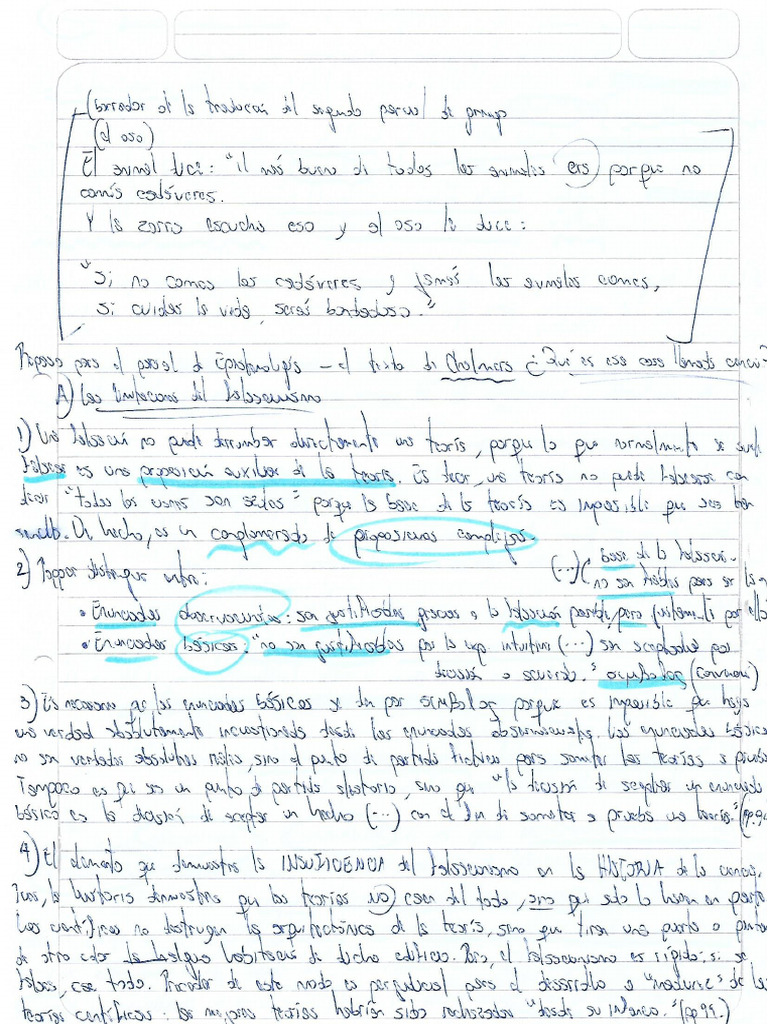 (borrador de la traducción del segundo parcial de griego
(el oso)
El animal dice: "El más bueno de todos los animales eres porque no
comés cadáveres.
Y la zorra escucha eso y al oso le dice:
"Si no comes los cadáveres y jamás los animales comes,
si cuidas la vida, serás bondadoso."
Repaso para el parcial de Epistemología – el texto de Chalmers ¿Qué es esa cosa llamada ciencia?
A) Las limitaciones del falsacionismo
1) Una falsación no puede derrumbar directamente una teoría, porque lo que normalmente se suele
falsear es una proposición auxiliar de la teoría. Es decir, una teoría no puede falsearse con
decir "todos los cisnes son" porque la base de la teoría es imposible que sea tan
sencilla. De hecho, es un conglomerado de proposiciones complejas.
2) Popper distingue entre:
(...) base de la falsación.
no son hábiles para ser la
• Enunciados observacionales: son justificados gracias a la falsación pero
• Enunciados básicos: "no son justificados por la exp. intuitiva (...) son aceptados por
decisión o acuerdo." (convención)
3) Es necesario que los enunciados básicos se den por porque es imposible que haya
una verdad absolutamente incuestionada desde los enunciados observacionales. Los enunciados básicos
no son verdades absolutas, sino el punto de partida para someter las teorías a prueba.
Tampoco es que sea un punto de partida aleatorio, sino que "la decisión de aceptar un enunciado
básico es la decisión de aceptar un hecho (...) con el fin de someter a prueba una teoría."
4) El elemento que demuestra la INSUFICIENCIA del falsacionismo en la HISTORIA de la ciencia.
la historia demuestra que las teorías no caen del todo, sino que solo lo hacen en parte.
Los científicos no destruyen la arquitectónica de la teoría, sino que tiran una parte o pintan
de otro color habitación de dicho edificio. Pero, el falsacionismo es rígido: si se
falsea, cae todo. Proceder de este modo es perjudicial para el desarrollo o "madurez" de las
teorías científicas: las mejores teorías habrían sido rechazadas "desde su infancia." (pp.99.)